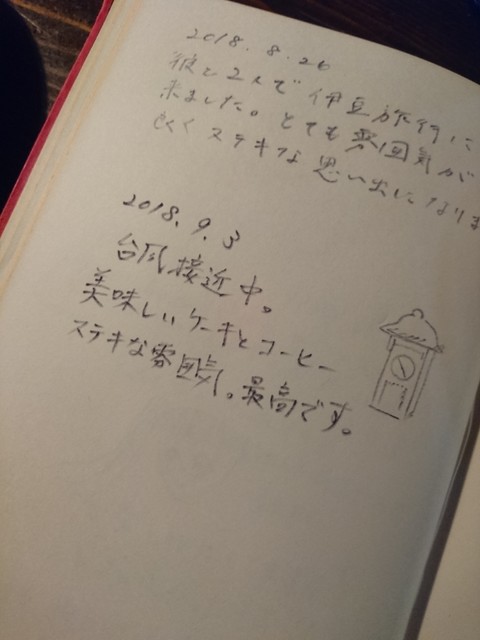 2018.8.26
彼と2人で伊豆旅行に
来ました。とても雰囲気が
良くステキな思い出になりま
2018.9.3
台風接近中。
美味しいケーキとコーヒー
ステキな雰囲気。最高です。